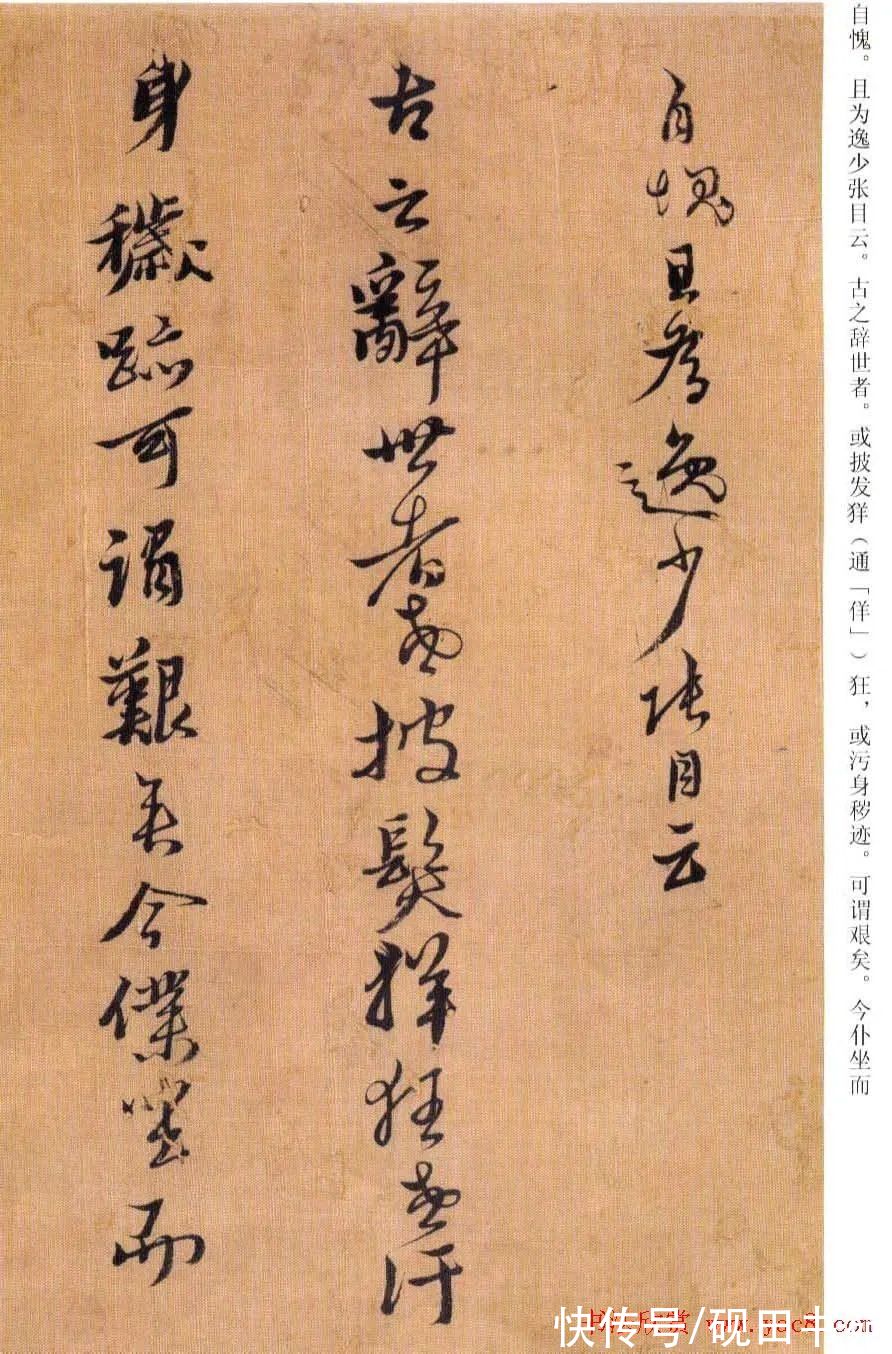 自愧。且为逸少张目云。古之辞世者。或披发犴（通「佯」）狂，或污身秽迹。可谓艰矣。今仆坐而
自愧且為逸少張目云
古之辭世者或披髮
狂或汙
身穢跡可謂艱矣今僕坐而
快传号/砚田书